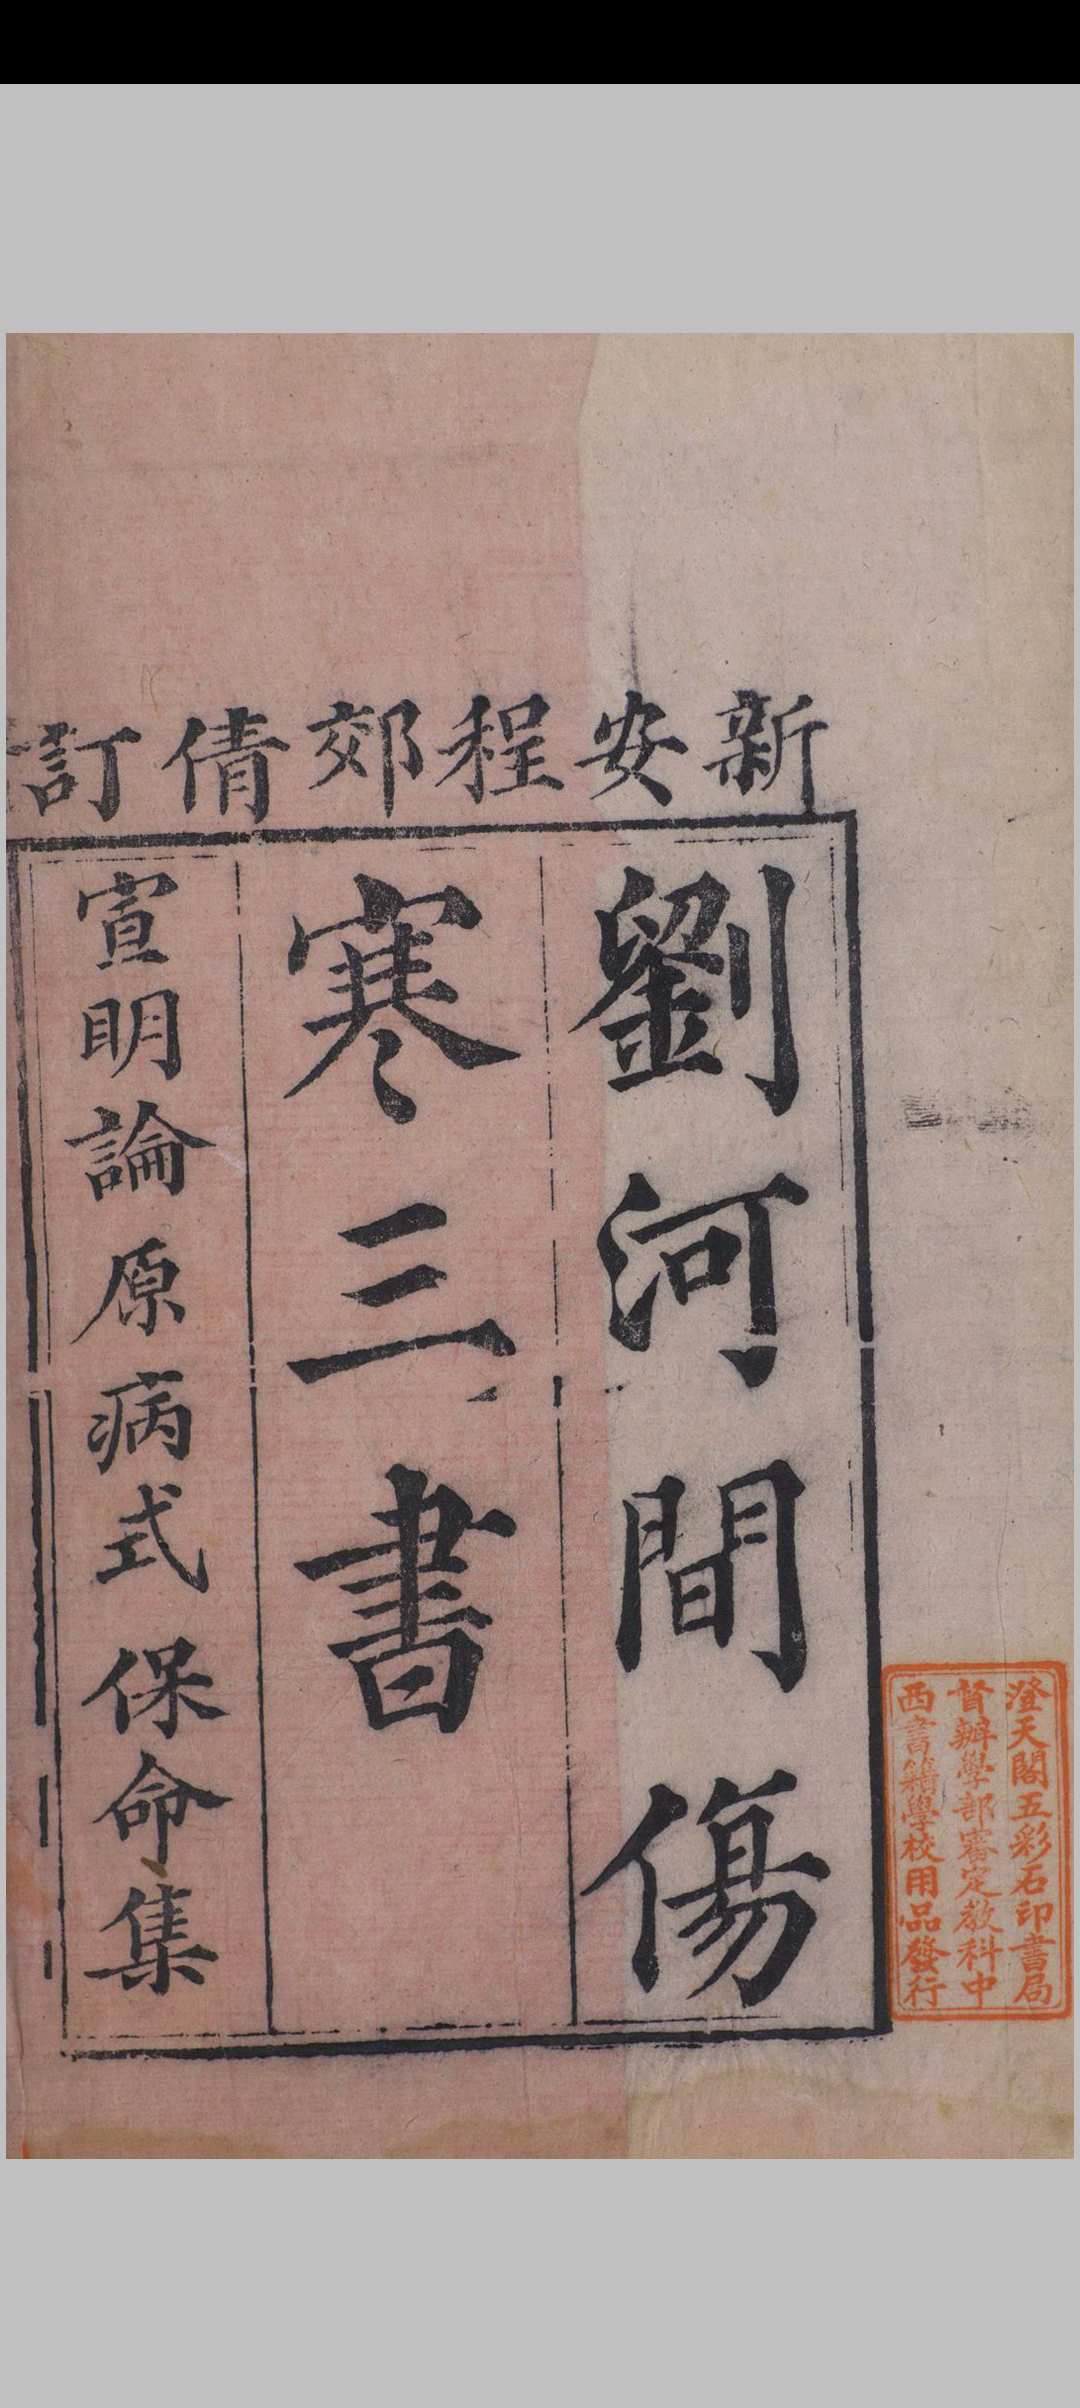 新安程郊倩訂
劉河間傷
寒三書
宣明論原病式保命集
澄天閣五彩石印書局
督辦學部審定教科中
西書籍學校用品發行